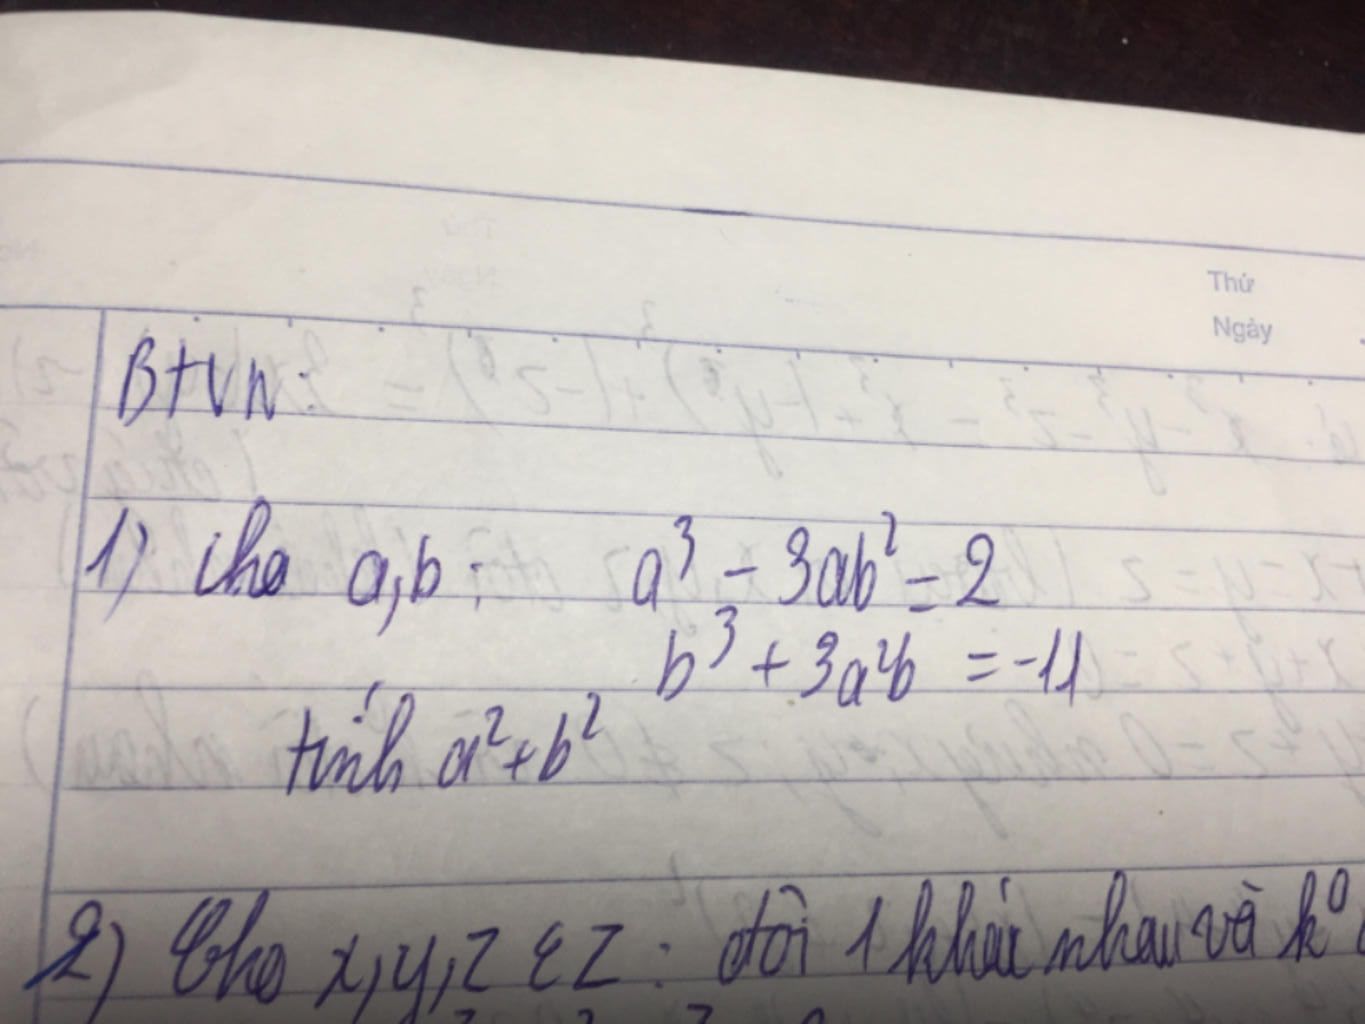 Thứ
Ngày
BTVN:
1) Cho a,b : a³ - 3ab² = 2
b³ + 3a²b = -11
tính a²+b²
2) Cho x,y,z ∈ Z : đôi 1 khác nhau và k⁰